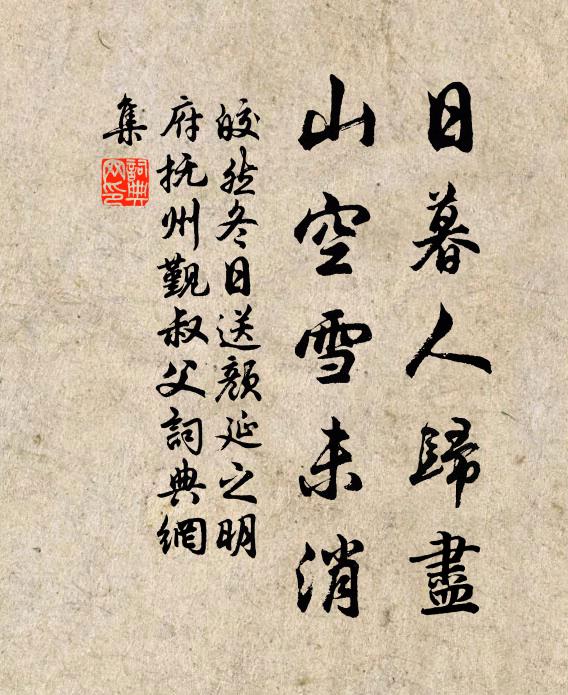 日暮人歸盡
山空雪未消
皎然冬日送顏延之明
府抚州觐叔父詞典網
集
詞典
网印